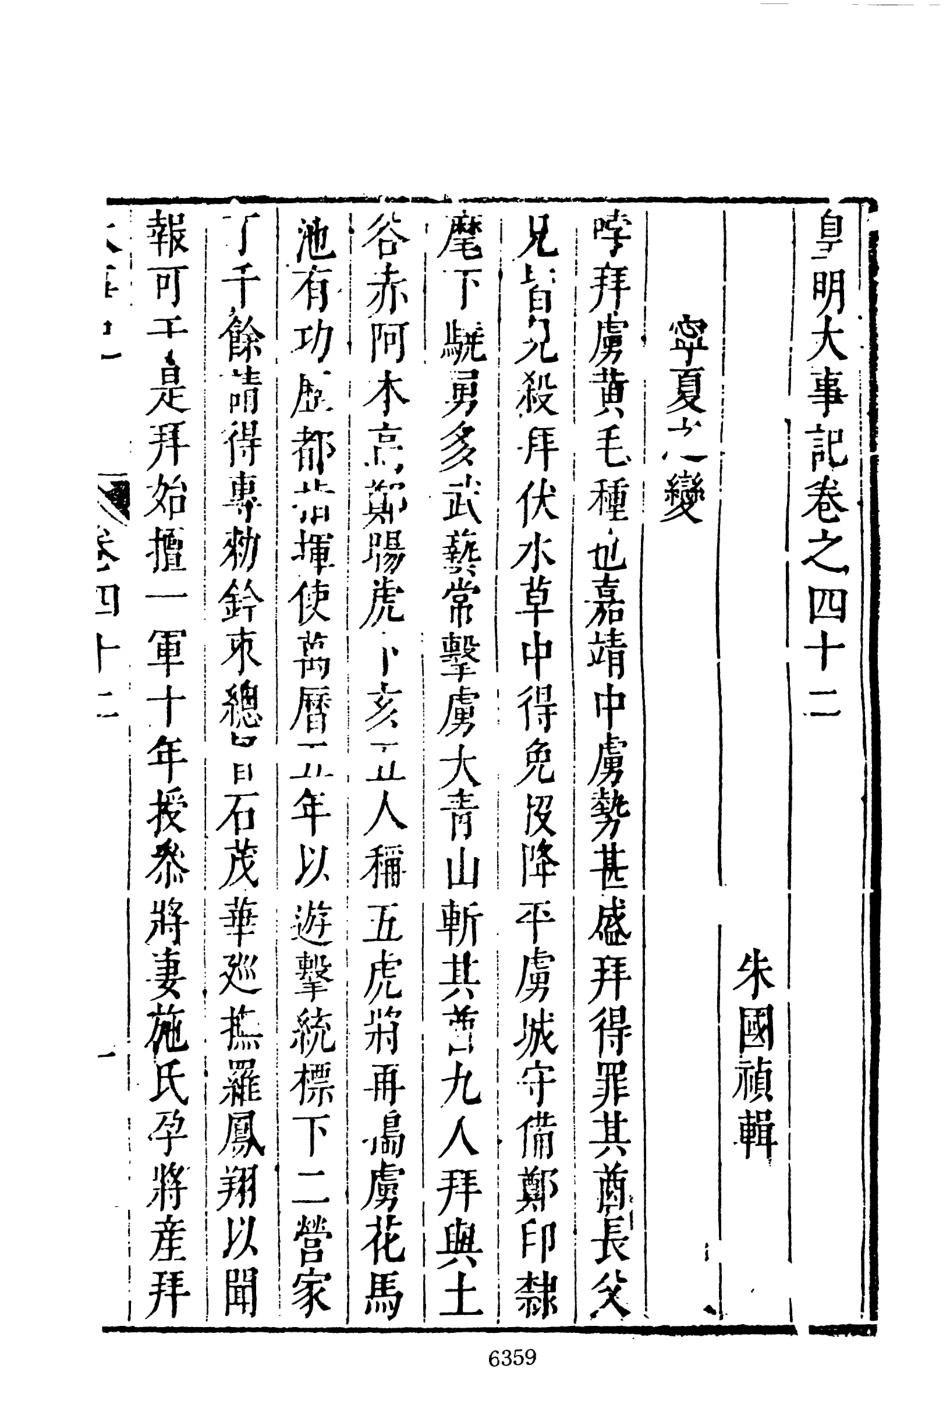 皇明大事記卷之四十二
朱國禎輯
寧夏之變
哱拜虜黃毛種也嘉靖中虜勢甚盛拜得罪其酋長父
兄皆見殺拜伏水草中得免投降平虜城守備鄭印隸
麾下驍勇多武藝常擊虜大青山斬其酋九人拜與土
谷赤阿木高鄭暘虎卜亥五人稱五虎將再搗虜花馬
池有功歷都指揮使萬曆五年以遊擊統標下二營家
丁千餘請得專勑鈐束總督石茂華廵撫羅鳳翔以聞
報可于是拜始擅一軍十年授叅將妻施氏孕將產拜
大事記 卷四十二 一
6359